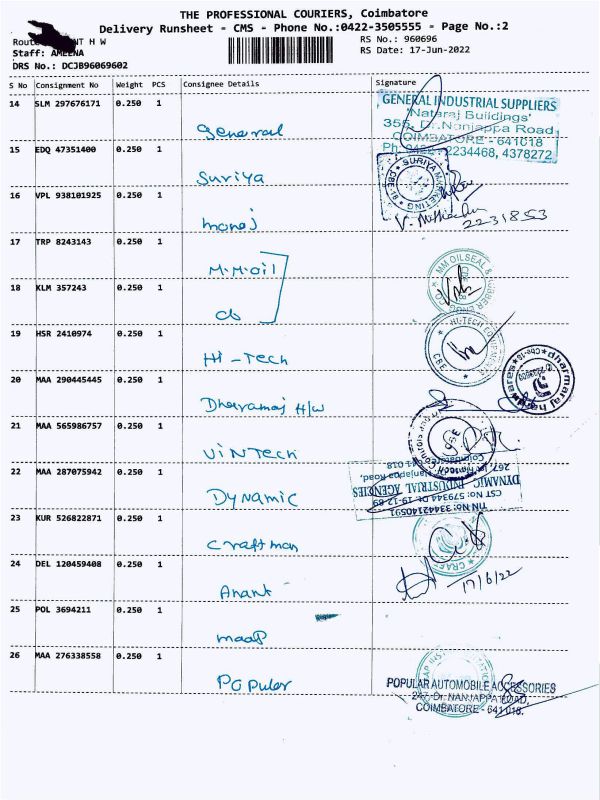 THE PROFESSIONAL COURIERS, Coimbatore
Delivery Runsheet - CMS - Phone No.:0422-3505555 - Page No.:2
NT H W
RS No.: 960696
Staff: AMEENA
RS Date: 17-Jun-2022
DRS No.: DCJB96069602
S No Consignment No Weight PCS Consignee Details Signature
14 SLM 297676171 0.250 1
General
GENERAL INDUSTRIAL SUPPLIERS
'Nataraj Buildings'
355, Dr. Nanjappa Road
COIMBATORE - 641018
Ph: 2234468, 4378272
15 EDQ 47351400 0.250 1
Suriya
SURIYA MARKETING
16 VPL 938101925 0.250 1
Manoj
17 TRP 8243143 0.250 1
M.M.oil
MM OILSEAL &
18 KLM 357243 0.250 1
cb
19 HSR 2410974 0.250 1
Hi-Tech
HI-TECH
CBE
20 MAA 290445445 0.250 1
Dharamaj H/W
dharmaraj hardwares
21 MAA 565986757 0.250 1
ViNTech
22 MAA 287075942 0.250 1
DYNAMIC
TIN No: 33442140591
CST No: 579344 Dt. 19-12-89
DYNAMIC INDUSTRIAL AGENCIES
267, Nanjappa Road,
Coimbatore 641 018
23 KUR 526822871 0.250 1
Craftman
24 DEL 120459408 0.250 1
Anant
17/6/22
25 POL 3694211 0.250 1
maap
26 MAA 276338558 0.250 1
Populer
POPULAR AUTOMOBILE ACCESSORIES
Dr. NANJAPPA ROAD,
COIMBATORE - 641 018.